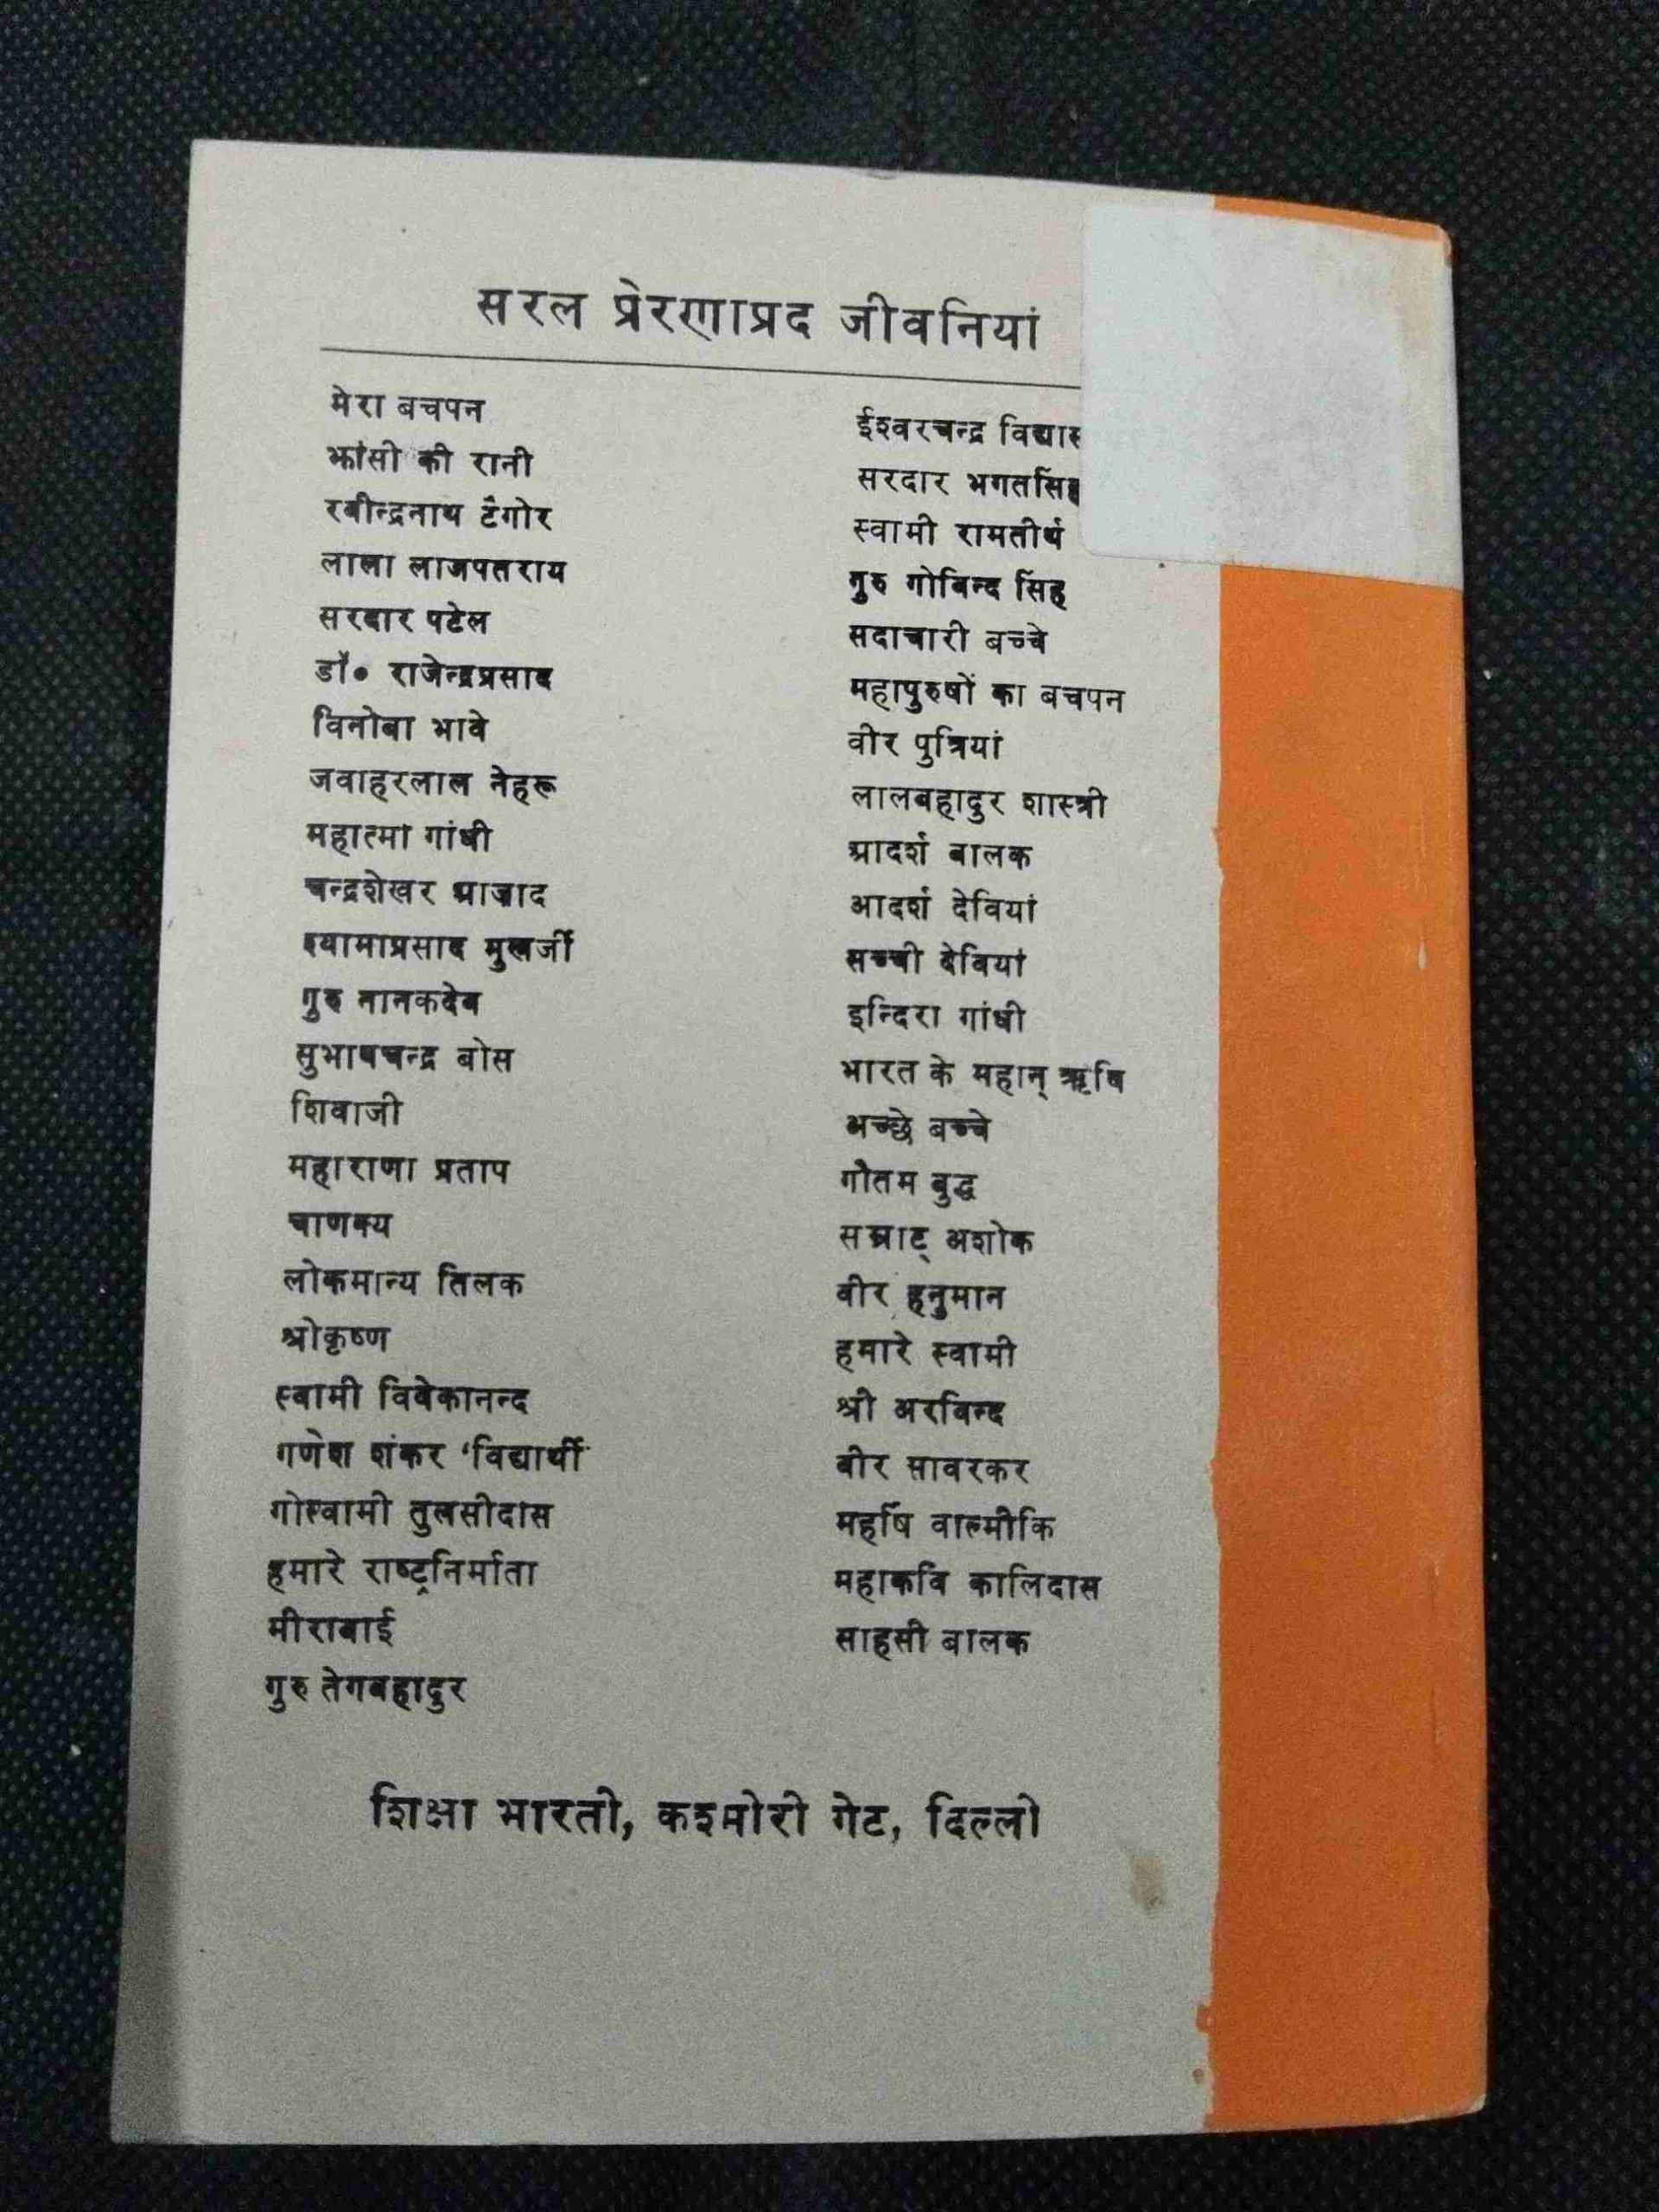 सरल प्रेरणाप्रद जीवनियां
मेरा बचपन
झांसी की रानी
रवीन्द्रनाथ टैगोर
लाला लाजपतराय
सरदार पटेल
डॉ० राजेन्द्रप्रसाद
विनोबा भावे
जवाहरलाल नेहरू
महात्मा गांधी
चन्द्रशेखर आज़ाद
श्यामाप्रसाद मुखर्जी
गुरु नानकदेव
सुभाषचन्द्र बोस
शिवाजी
महाराणा प्रताप
चाणक्य
लोकमान्य तिलक
श्रीकृष्ण
स्वामी विवेकानन्द
गणेश शंकर 'विद्यार्थी'
गोस्वामी तुलसीदास
हमारे राष्ट्रनिर्माता
मीराबाई
गुरु तेगबहादुर
ईश्वरचन्द्र
सरदार भगतसिंह
स्वामी रामतीर्थ
गुरु गोबिन्द सिंह
सदाचारी बच्चे
महापुरुषों का बचपन
वीर पुत्रियां
लालबहादुर शास्त्री
आदर्श बालक
आदर्श देवियां
सच्ची देवियां
इन्दिरा गांधी
भारत के महान् ऋषि
अच्छे बच्चे
गौतम बुद्ध
सम्राट् अशोक
वीर हनुमान
हमारे स्वामी
श्री अरविन्द
वीर सावरकर
महर्षि वाल्मीकि
महाकवि कालिदास
साहसी बालक
शिक्षा भारती, कश्मीरी गेट, दिल्ली